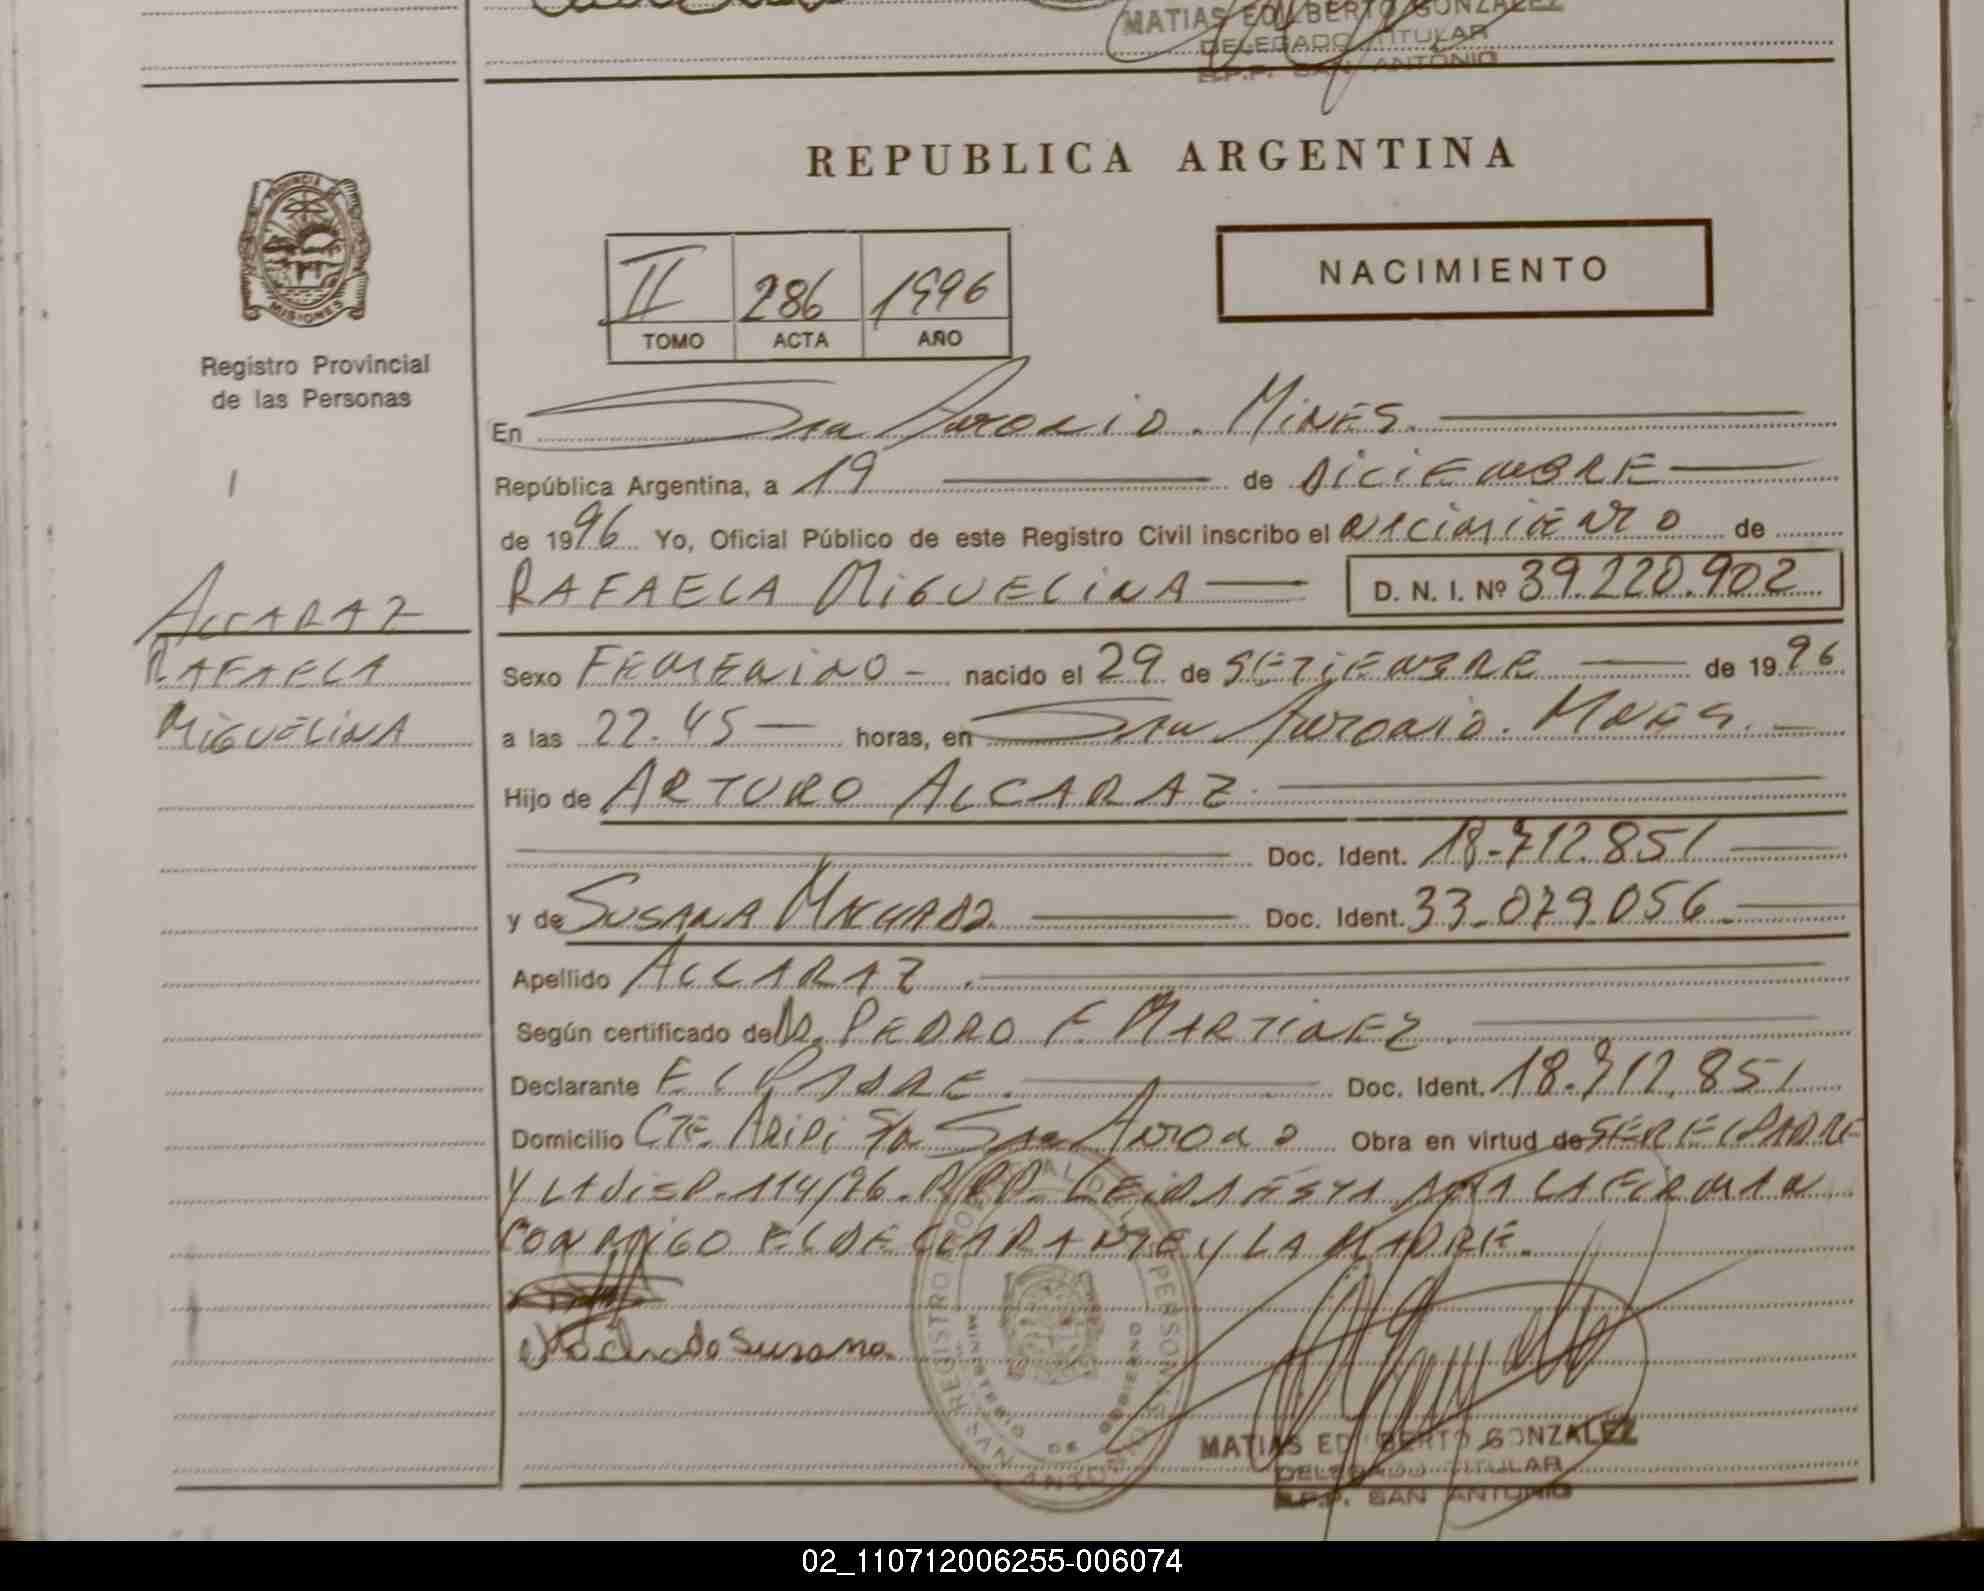 MATIAS EDILBERTO GONZALEZ
DELEGADO TITULAR
R.P.P. SAN ANTONIO
PROVINCIA DE
MISIONES
Registro Provincial
de las Personas
ALCARAZ
RAFAELA
MIGUELINA
REPUBLICA ARGENTINA
II 286 1996
TOMO ACTA AÑO
NACIMIENTO
En San Antonio. Mnes.
República Argentina, a 19 de DICIEMBRE
de 1996 Yo, Oficial Público de este Registro Civil inscribo el NACIMIENTO de
RAFAELA MIGUELINA D. N. I. Nº 39.220.902
Sexo FEMENINO - nacido el 29 de SETIEMBRE de 1996
a las 22.45 horas, en San Antonio. Mnes.
Hijo de ARTURO ALCARAZ
Doc. Ident. 18.712.851
y de SUSANA MACHADO Doc. Ident. 33.079.056
Apellido ALCARAZ
Según certificado de DR. PEDRO F. MARTINEZ
Declarante EL PADRE Doc. Ident. 18.712.851
Domicilio CTE. S/N San Antonio Obra en virtud de SER EL PADRE
Y LA DISP. 114/96. R.P.P. LEIDA ESTA ACTA LA FIRMAN
CONMIGO EL DECLARANTE Y LA MADRE.
Machado Susana
REGISTRO PROVINCIAL DE LAS PERSONAS
MINISTERIO DE GOBIERNO
SAN ANTONIO
MATIAS EDILBERTO GONZALEZ
DELEGADO TITULAR
R.P.P. SAN ANTONIO
02_110712006255-006074